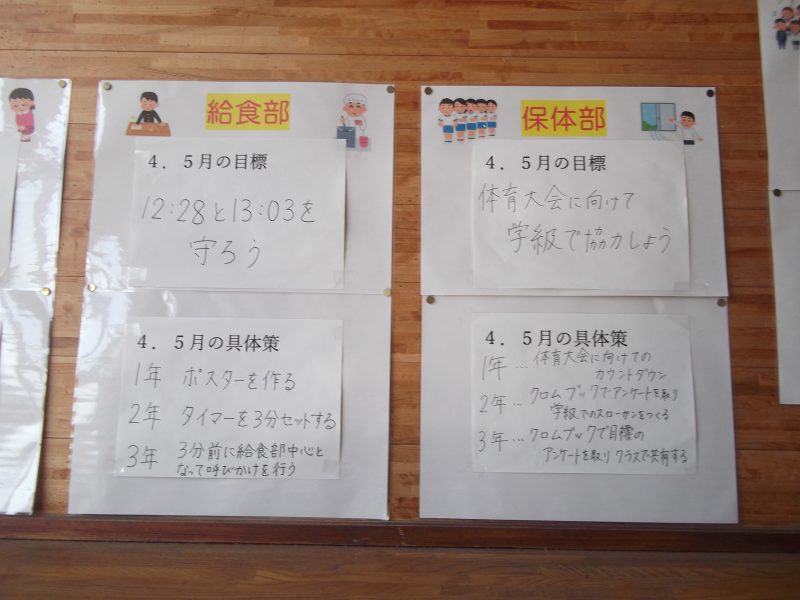 給食部
4．5月の目標
12:28と13:03を
守ろう
4．5月の具体策
1年 ポスターを作る
2年 タイマーを3分セットする
3年 3分前に給食部中心と
なって呼びかけを行う
保体部
4．5月の目標
体育大会に向けて
学級で協力しよう
4．5月の具体策
1年…体育大会に向けての
カウントダウン
2年…クロムブックでアンケートを取り
学級でのスローガンをつくる
3年…クロムブックで目標の
アンケートを取り クラスで共有する